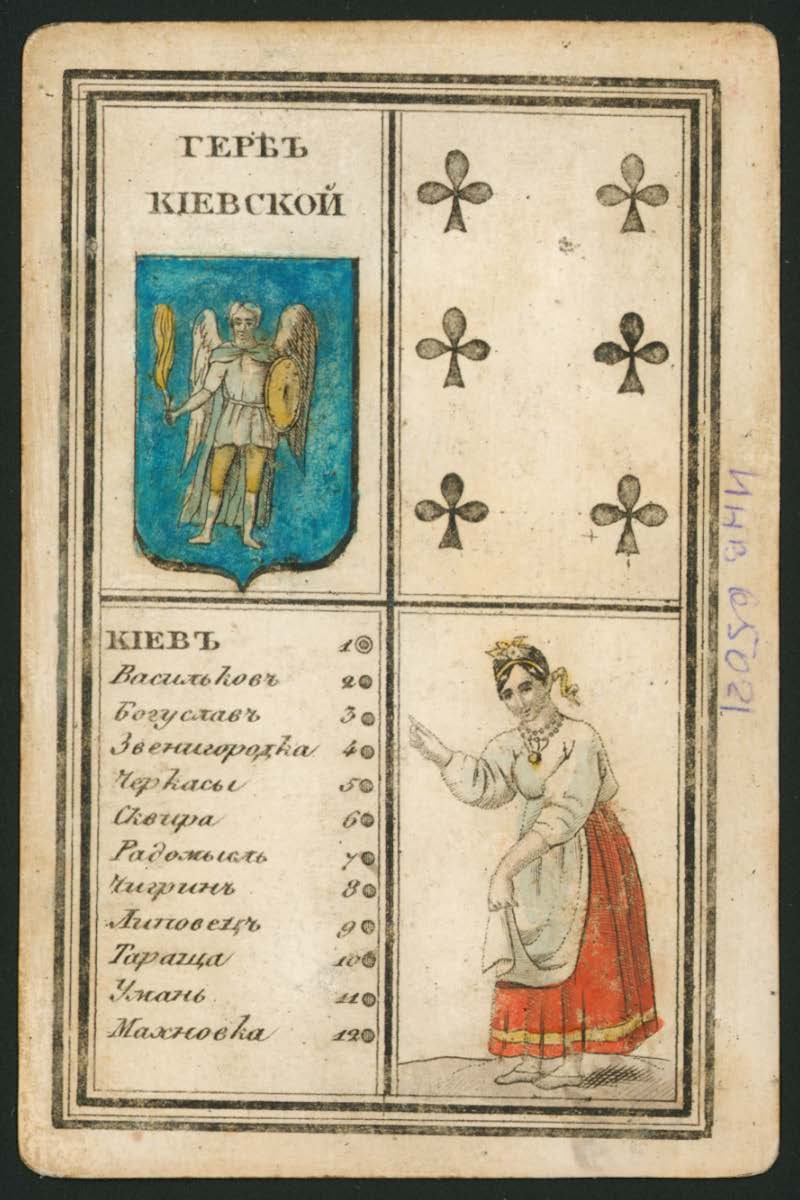 ГЕРБЪ
КІЕВСКОЙ
КІЕВЪ 1
Васильковъ 2
Богуславъ 3
Звенигородка 4
Черкасы 5
Сквира 6
Радомысль 7
Чигринъ 8
Липовецъ 9
Тараща 10
Умань 11
Махновка 12
Инв 65021